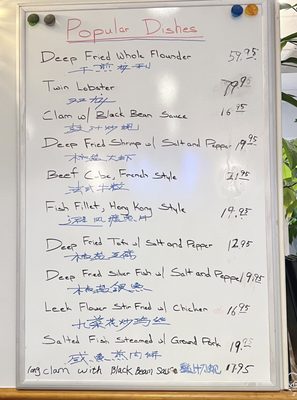 Popular Dishes
Deep Fried Whole Flounder 59.95
干煎左利
Twin Lobster 79.95
双龙
Clam w/ Black Bean Sauce 16.95
豉汁炒蚬
Deep Fried Shrimp w/ Salt and Pepper 19.95
椒盐大虾
Beef Cube, French Style 21.95
法式牛粒
Fish Fillet, Hong Kong Style 19.95
避风塘魚片
Deep Fried Tofu w/ Salt and Pepper 12.95
椒盐豆腐
Deep Fried Silver Fish w/ Salt and Pepper 19.95
椒盐銀魚
Leek Flower Stir Fried w/ Chicken 16.95
韭菜花炒鸡丝
Salted Fish Steamed w/ Ground Pork 19.95
咸魚蒸肉饼
long clam with Black Bean Sauce 17.95